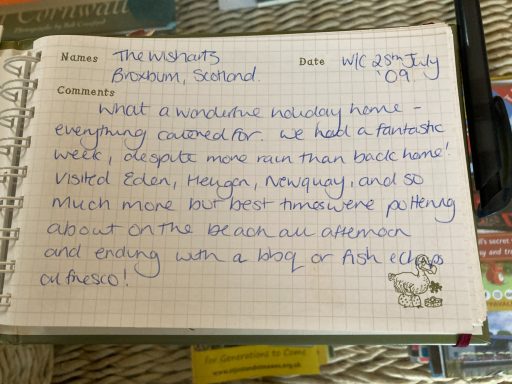 Cornwall
Names The Wisharts Date W/C 25th July
Broxburn, Scotland. '09
Comments
What a wonderful holiday home -
everything catered for. We had a fantastic
week, despite more rain than back home!
Visited Eden, Heligan, Newquay, and so
much more but best times were pottering
about on the beach all afternoon
and ending with a bbq or fish & chips
al fresco!
for Generations to Come